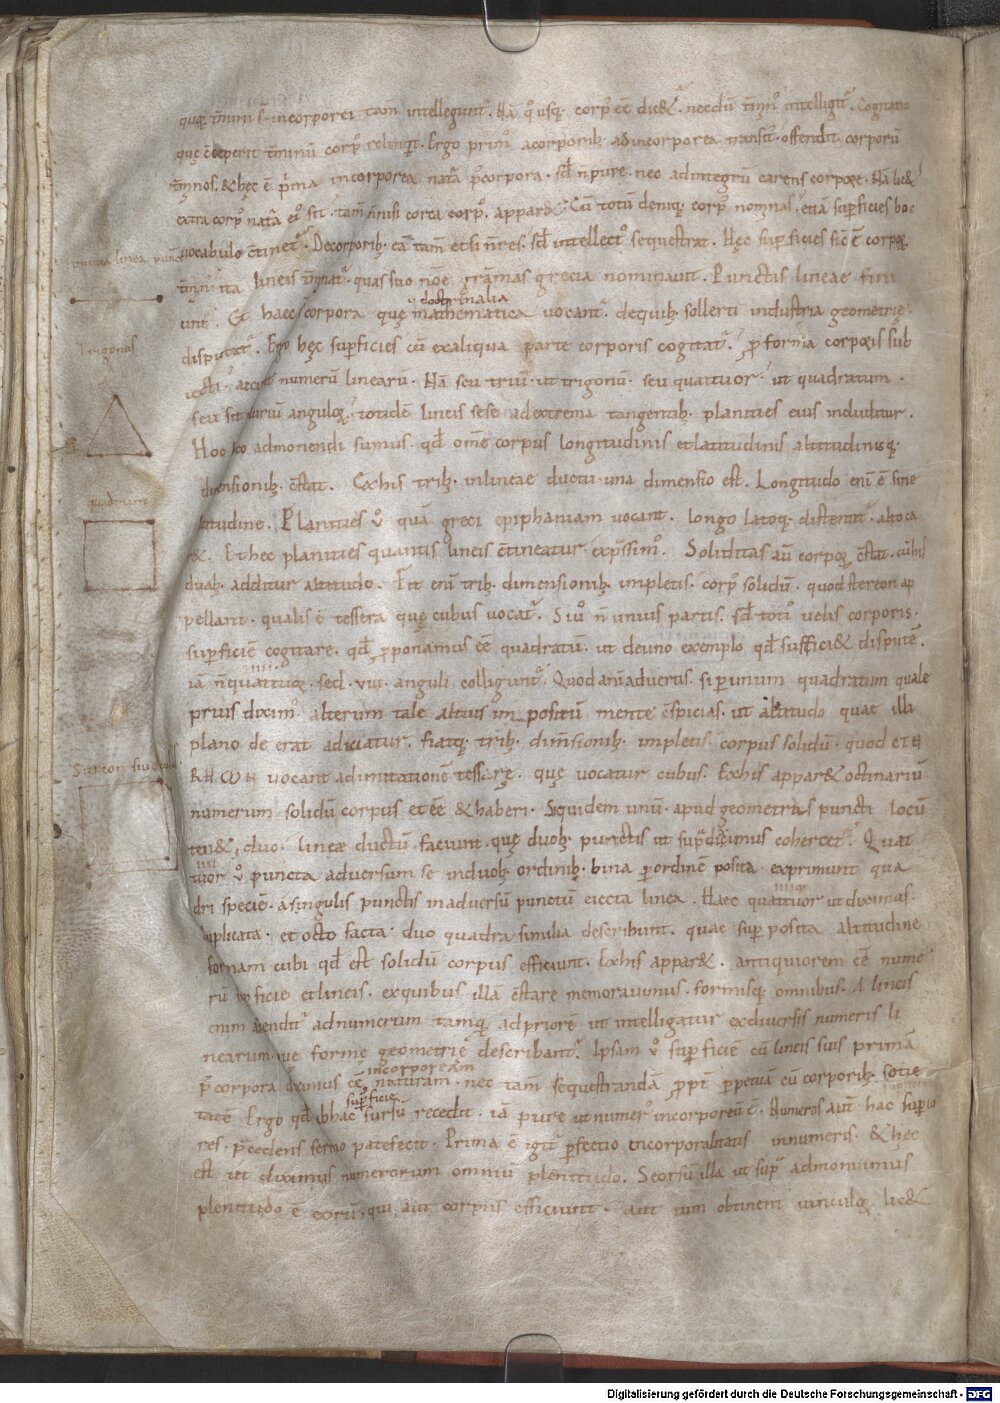 quoq; t̄mini s· incorporei tam̄ intelleguntᷣ. Nā qͦusq; corpꝰ ēē dic&ᷣ· necdū t̄minꝰ intelligitᷣ. Cogitatio
quę cęperit t̄minū corpꝰ relinqͥt. Ergo primꝰ acorporib; adincorporea transitꝰ offendit corporū
t̄minos, & hęc ē pͥma incorporea natᷓa p̄ corpora· sꝫ n̄ pure· nec adintegrū carens corpore. Nā lic&
extra corpꝰ natᷓa eiꝰ sit· tam̄ n̄nisi circa corpꝰ appar&. Cū totū deniq; corpꝰ nominas, etiā supficies hoc
vocabulo c̄tinetᷣ. Decorporib; eā tam̄ etsi n̄ res, sꝫ intellectꝰ sequestrat. Hęc supficies sic̄ ē corpoꝝ
t̄minꝰ ita lineis t̄minatᷣ· quas suo nōe grāmas grecia nominavit. Punctis lineae fini
unt̄. Et haec corpora quę mathematica vocant̄. dequib; sollerti industria geometrię
doctrinalia
disputatᷣ. Ergo hęc supficies cū exaliqua parte corporis cogitatᷣ· ꝓ forma corporis sub
iecti· accipit numerū linearū. Nā seu triū· ut trigonū· seu quattuor· ut quadratum·
seu sit plurium anguloꝝ· totidē lineis sese adextrema tangentib; planities eius includitur.
Hoc loco admonendi sumus· qđ om̄e corpus longitudinis et latitudinis altitudinisq;
dimensionib; c̄stat. Exhis trib; inlineae ductu· una dimensio est. Longitudo enī ē sine
latitudine. Planities vͦ quā greci epiphaniam vocant. longo latoq; distenditᷣ· alto ca
r&. Et hec planities quantis lineis c̄tineatur exp̄ssimꝰ. Soliditas aū corpoꝝ c̄stat· cūhis
duab; additur altitudo. Fit enī trib; dimensionib; impletis· corpꝰ solidū· quod stereon ap
pellant· qualis ē tessera quę cubus vocatᷣ. Si vͦ n̄ unius partis· sꝫ totiꝰ velis corporis·
supficiē cogitare· qđ ꝓponamus ēē quadratū· ut deuno exemplo qđ suffici& disputē.
iā n̄ quattuor· sed· viii· anguli colliguntᷣ. Quod aniṁadvertis. si supunum quadratum quale
prius diximꝰ alterum tale altius inpositū mente c̄spicias. ut altitudo quae illi
plano deerat adiciatur. fiatq; trib; dim̄sionib; impletis· corpus solidū· quod CTH
RHWN vocant adimitationē tesserę· quę vocatur cubus. Exhis appar& octinariū
numerum solidū corpus et ēē & haberi. Siquidem unū· apud geometras puncti locū
tin&; duo· lineæ ductū faciunt. quę duob; punctis ut supͣ diximus cohercetᷣ. Quat
tuor vͦ puncta adversum se induob; ordinib; bina pordinē posita· exprimunt qua
dri speciē· asingulis punctis inadversū punctū eiecta linea. Haec quattuor ut diximus·
duplicata· et octo facta· duo quadra similia describunt. quae sup posita altitudine
formam cubi qđ est solidū corpus efficiunt. Exhis appar&· antiquiorem ēē nume
rū supficie et lineis· exquibus illā c̄stare memoravimus· formisq; omnibus. A lineis
enim ascenditᷣ adnumerum tamqͣ adpriorē ut intelligatur exdiversis numeris li
nearum que formę geometrię describantᷣ. Ipsam vͦ supficiē cū lineis suis primā
p̄ corpora diximus ēē naturam· nec tam̄ sequestrandā ꝓpt̄ ppetuā cū corporib; socie
incorpoream
tatē Ergo qđ abhac sursū recedit· iā pure ut numerꝰ incorporeū ē. Numeros aūt hac supio
supficie
res· p̄cedens sermo patefecit. Prima ē igitᷣ pfectio incorporalitatis innumeris· & hęc
est ut diximus numerorum omniū plenitudo. Seorsū illa ut supͣ admonuimus
plenitudo ē eorū· qui aut corpus efficiunt· aut vim obtinent vinculoꝝ lic&
linea punct
Trigonus
quadrum
Stereon sive